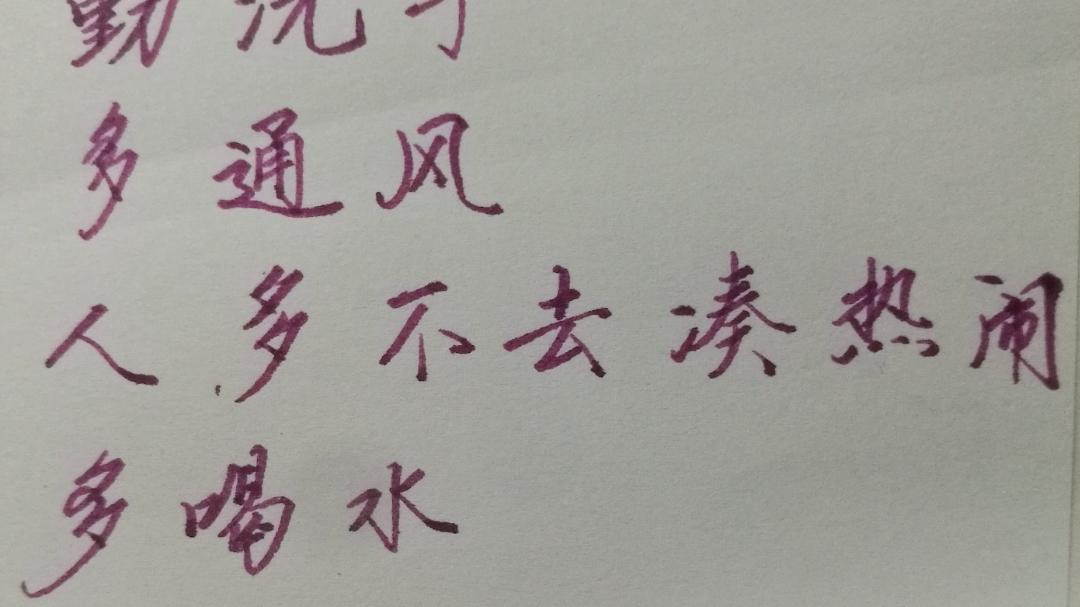 勤洗手
多通风
人多不去凑热闹
多喝水